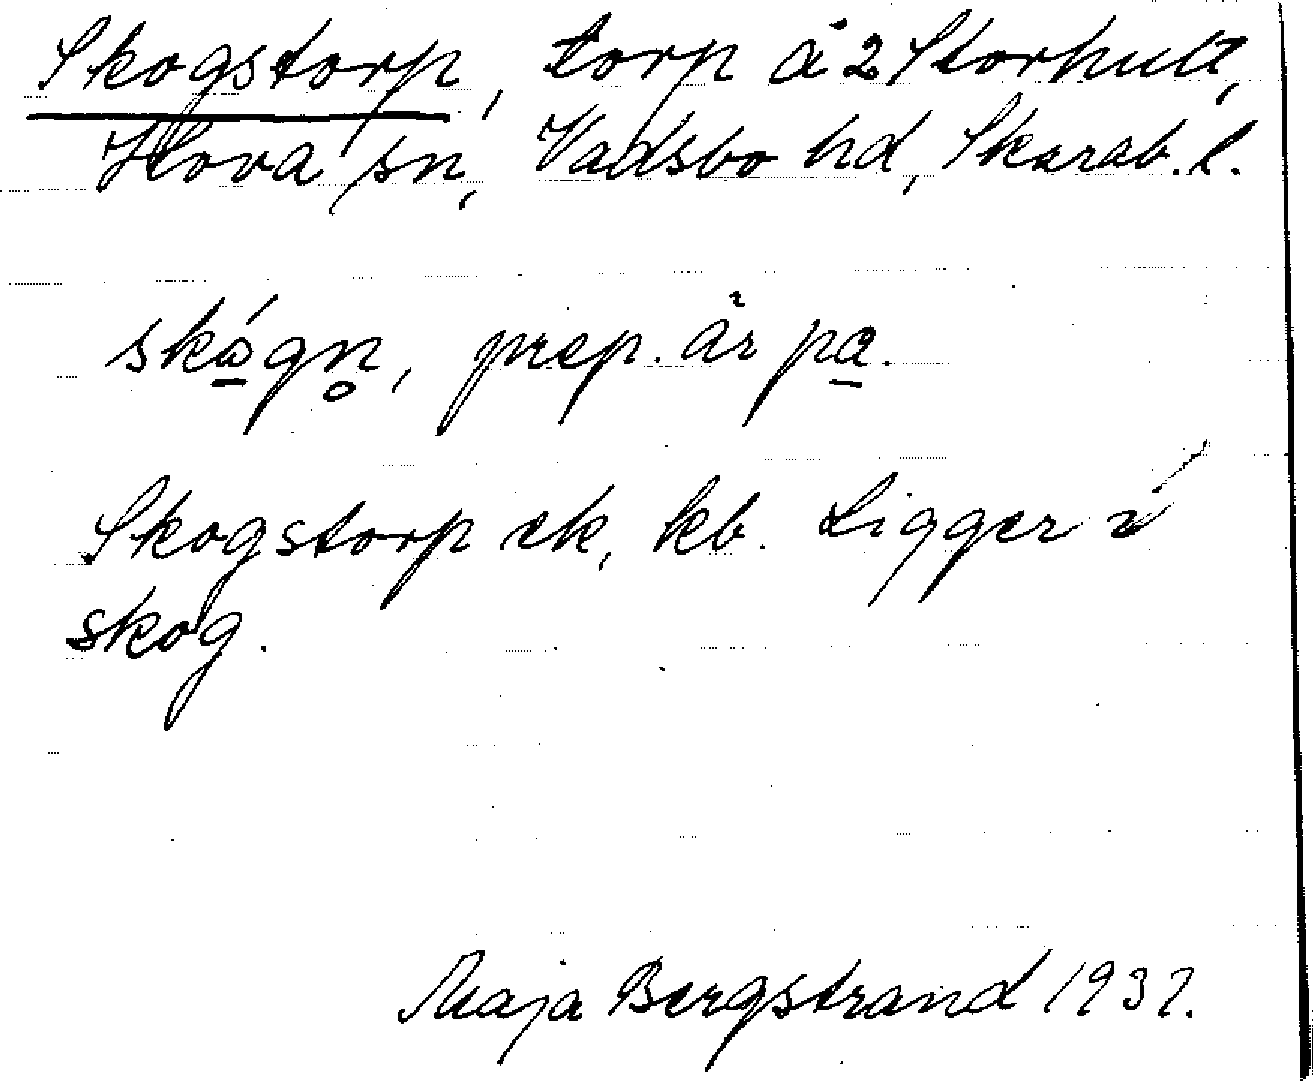 Skogstorp, torp å 2 Storhult,
Hova sn, Vadsbo hd, Skarab. l.
skógn, prep. är pa.
Skogstorp ek, kb. Ligger i
skog.
Maja Bergstrand 1937.